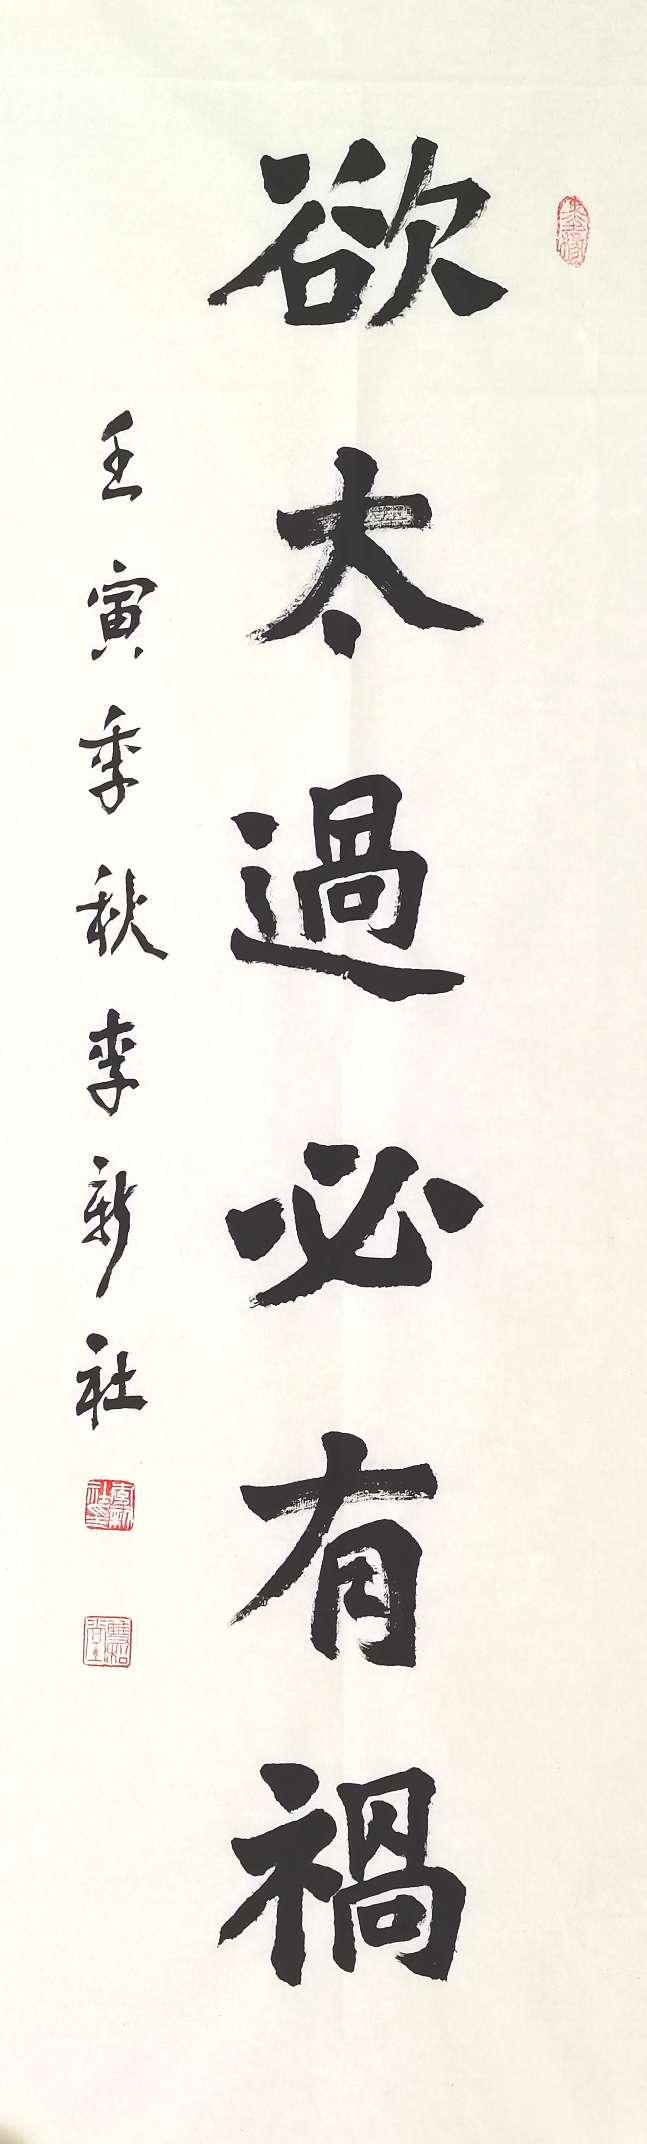 欲太過必有禍
壬寅季秋李新社